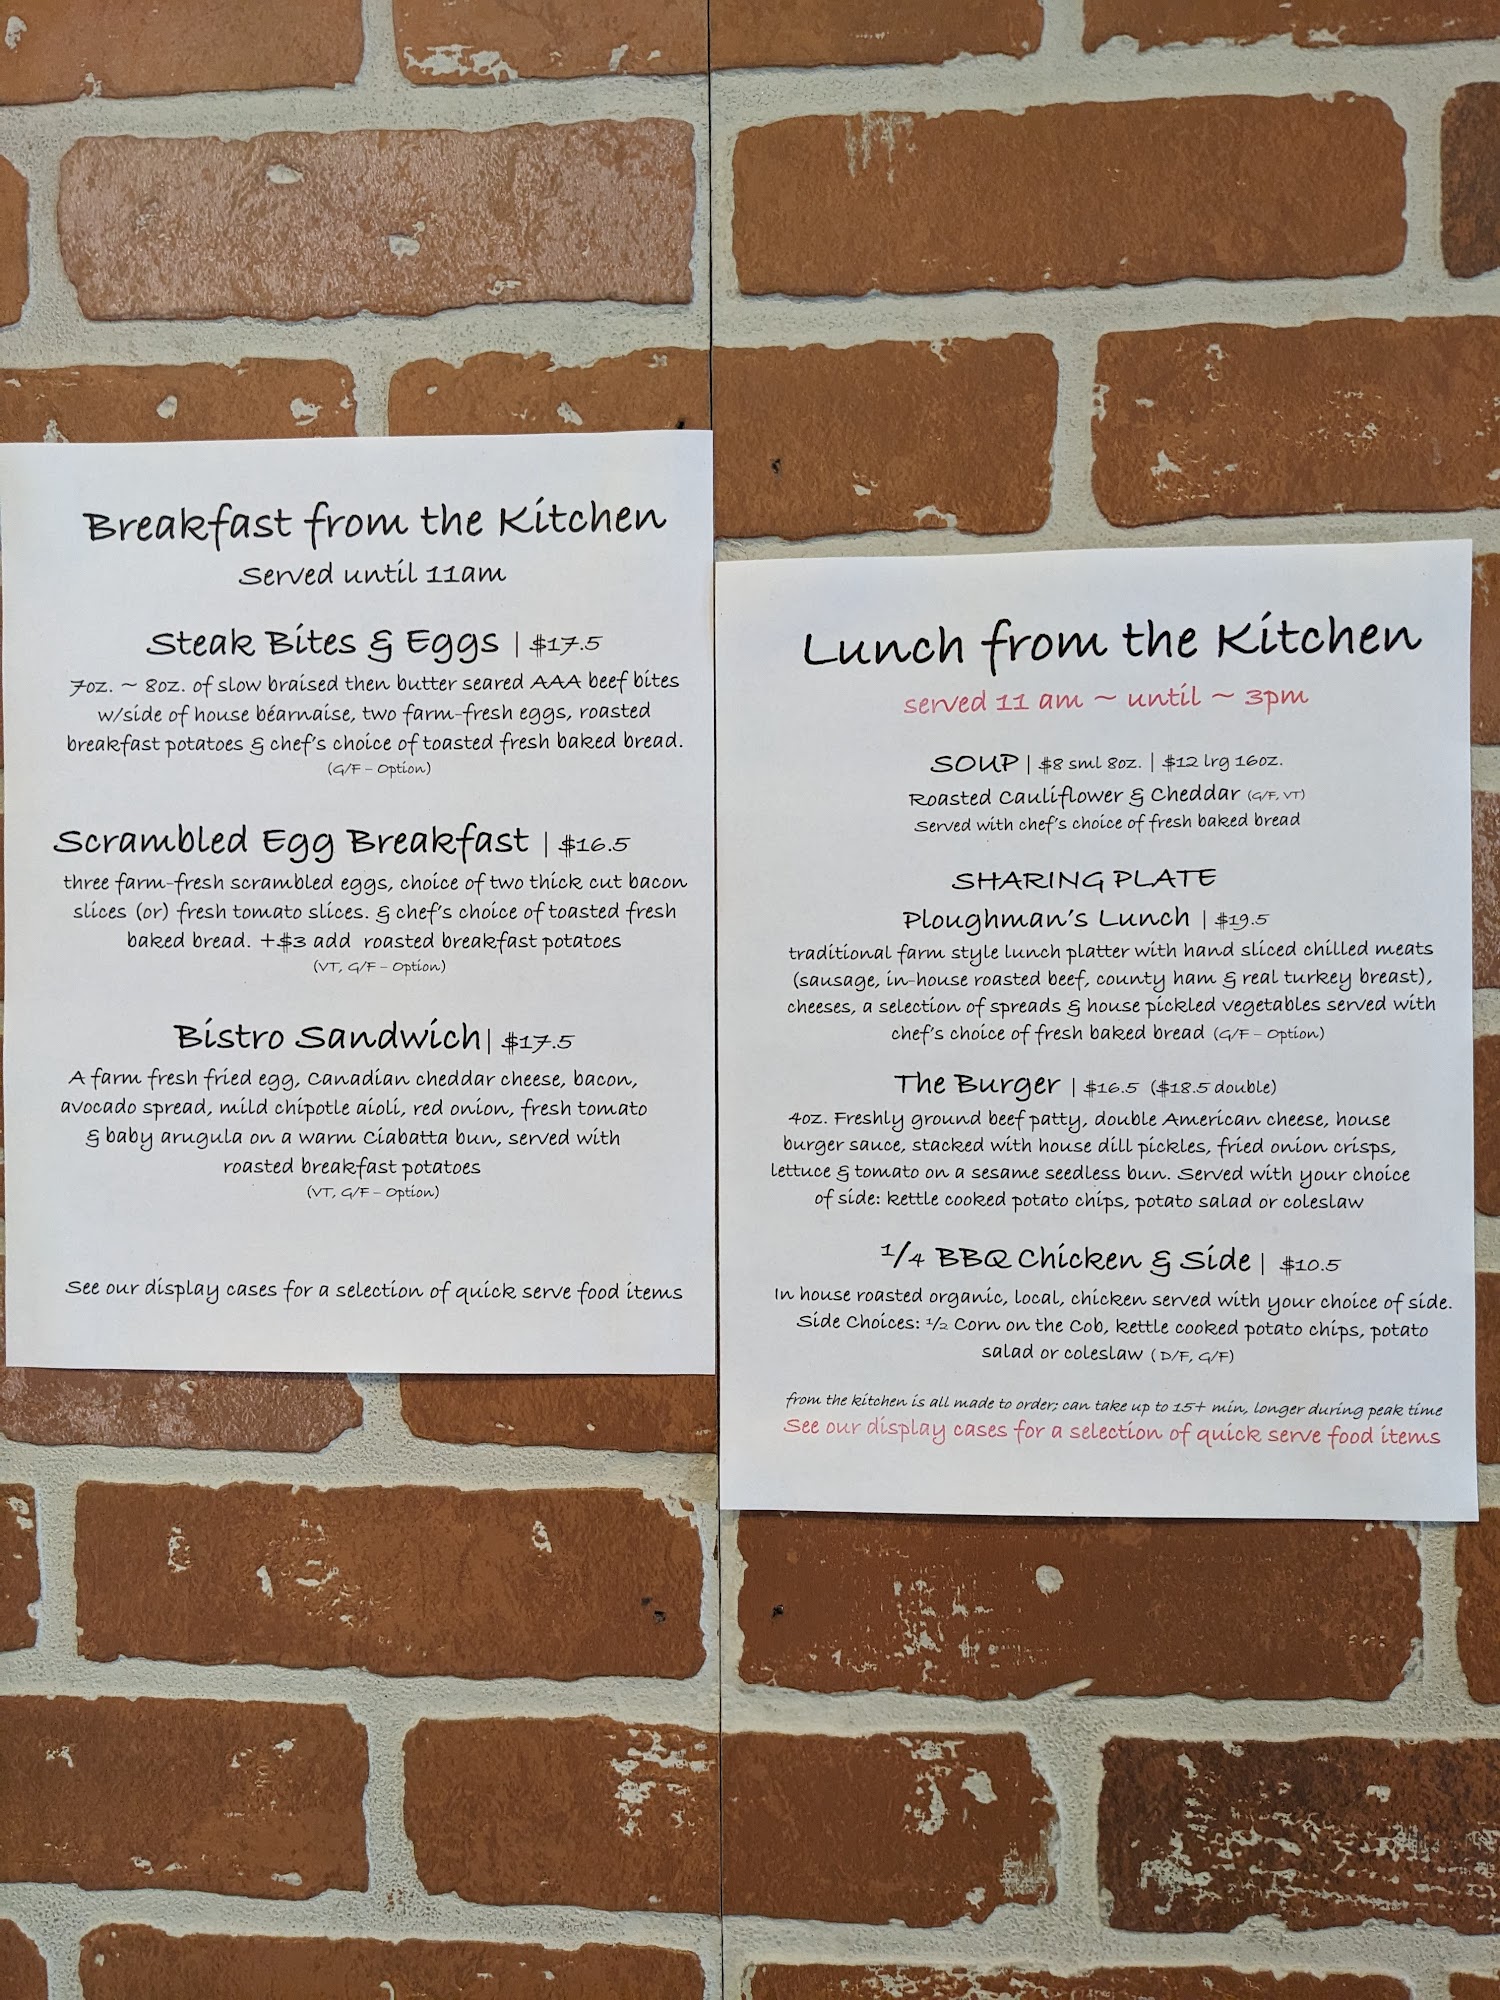 Breakfast from the Kitchen
Served until 11am
Steak Bites & Eggs | $17.5
7oz. ~ 8oz. of slow braised then butter seared AAA beef bites
w/side of house béarnaise, two farm-fresh eggs, roasted
breakfast potatoes & chef's choice of toasted fresh baked bread.
(G/F - Option)
Scrambled Egg Breakfast | $16.5
three farm-fresh scrambled eggs, choice of two thick cut bacon
slices (or) fresh tomato slices. & chef's choice of toasted fresh
baked bread. +$3 add roasted breakfast potatoes
(VT, G/F - Option)
Bistro Sandwich| $17.5
A farm fresh fried egg, Canadian cheddar cheese, bacon,
avocado spread, mild chipotle aioli, red onion, fresh tomato
& baby arugula on a warm Ciabatta bun, served with
roasted breakfast potatoes
(VT, G/F - Option)
See our display cases for a selection of quick serve food items
Lunch from the Kitchen
served 11 am ~ until ~ 3pm
SOUP | $8 sml 8oz. | $12 lrg 16oz.
Roasted Cauliflower & Cheddar (G/F, VT)
Served with chef's choice of fresh baked bread
SHARING PLATE
Ploughman's Lunch | $19.5
traditional farm style lunch platter with hand sliced chilled meats
(sausage, in-house roasted beef, county ham & real turkey breast),
cheeses, a selection of spreads & house pickled vegetables served with
chef's choice of fresh baked bread (G/F - Option)
The Burger | $16.5 ($18.5 double)
4oz. Freshly ground beef patty, double American cheese, house
burger sauce, stacked with house dill pickles, fried onion crisps,
lettuce & tomato on a sesame seedless bun. Served with your choice
of side: kettle cooked potato chips, potato salad or coleslaw
1/4 BBQ Chicken & Side | $10.5
In house roasted organic, local, chicken served with your choice of side.
Side Choices: 1/2 Corn on the Cob, kettle cooked potato chips, potato
salad or coleslaw (D/F, G/F)
from the kitchen is all made to order; can take up to 15+ min, longer during peak time
See our display cases for a selection of quick serve food items